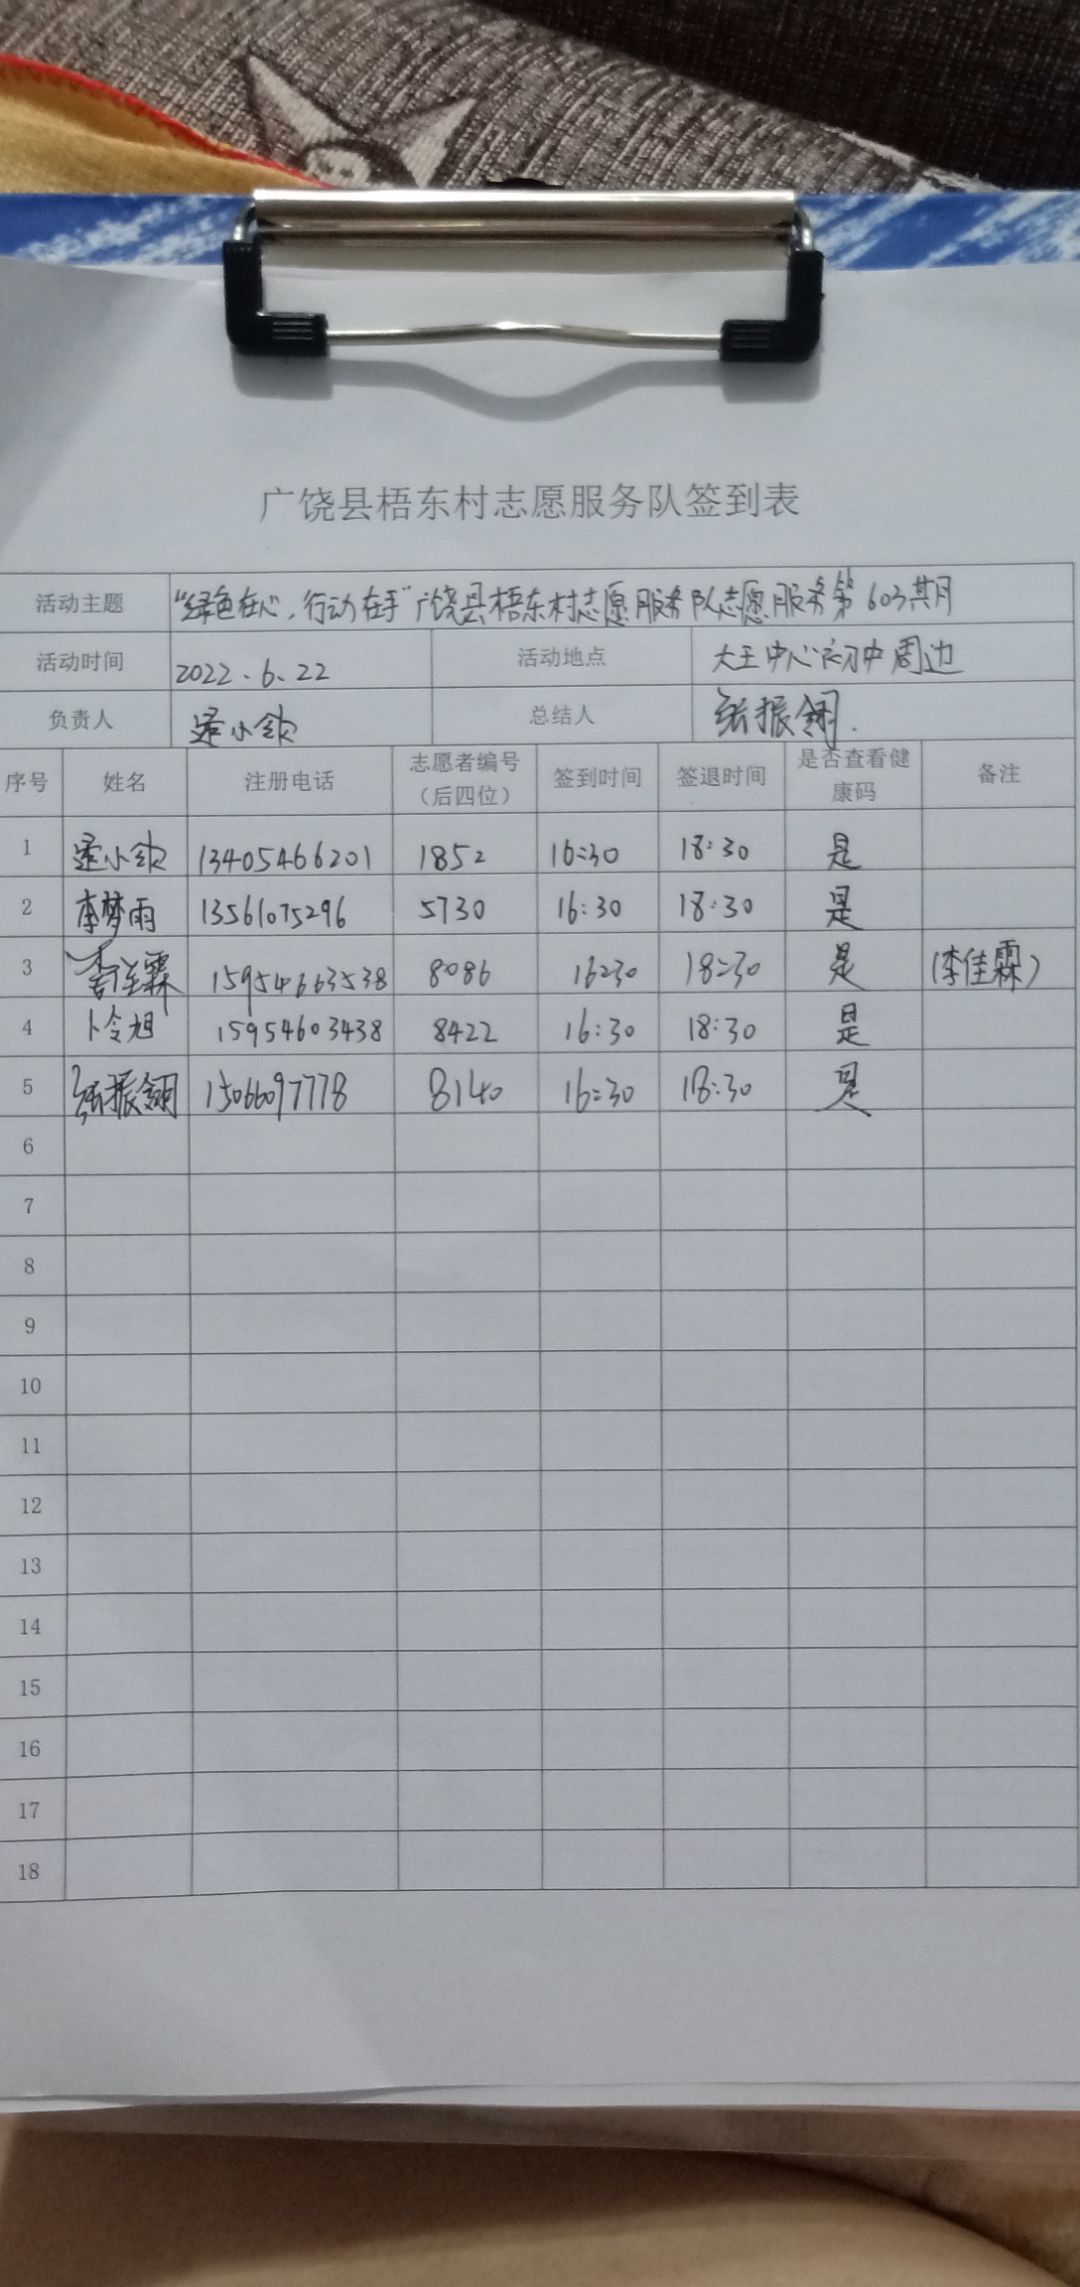 广饶县梧东村志愿服务队签到表
活动主题 “绿色在心,行动在手”广饶县梧东村志愿服务队志愿服务第603期
活动时间 2022.6.22 活动地点 大王中心初中周边
负责人 小钦 总结人 张振翎.
序号 姓名 注册电话 志愿者编号（后四位） 签到时间 签退时间 是否查看健康码 备注
1 小钦 13405466201 1852 16:30 18:30 是
2 李梦雨 13561075296 5730 16:30 18:30 是
3 李佳霖 15954663538 8086 16:30 18:30 是 (李佳霖)
4 卜令旭 15954603438 8422 16:30 18:30 是
5 张振翎 15066097778 8140 16:30 18:30 是
6
7
8
9
10
11
12
13
14
15
16
17
18